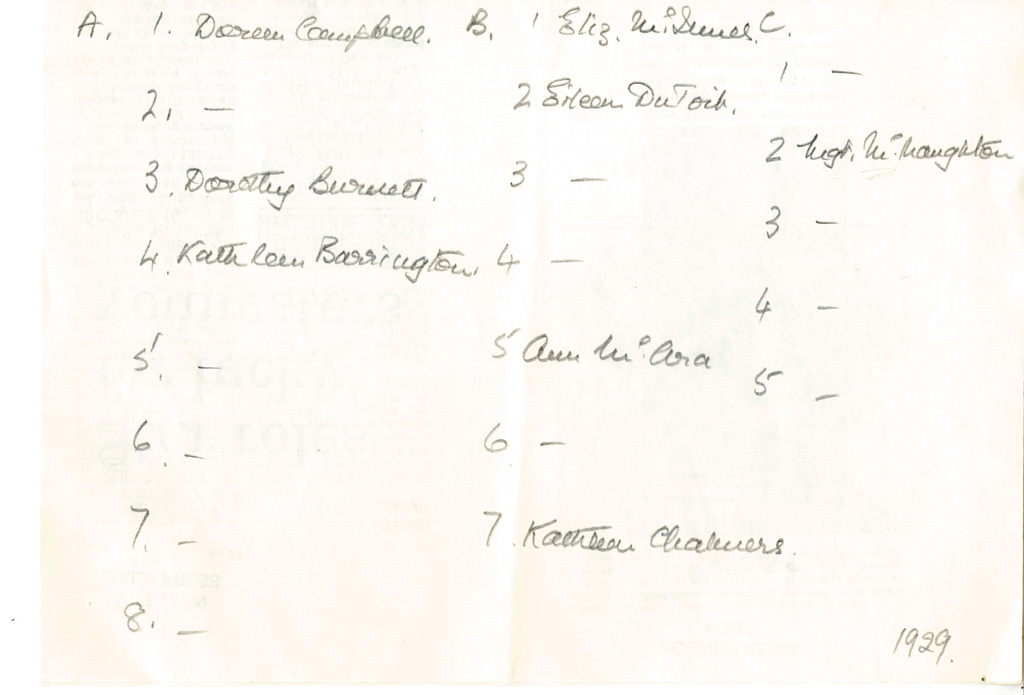 A. 1. Doreen Campbell.
2. —
3. Dorothy Burnett.
4. Kathleen Barrington.
5. —
6. —
7. —
8. —
B. 1 Eliz. McInnes.
2 Eileen DuToit.
3 —
4 —
5 Ann McAra
6 —
7. Kathleen Chalmers.
C.
1 —
2 Mgt. McNaughton
3 —
4 —
5 —
1929.